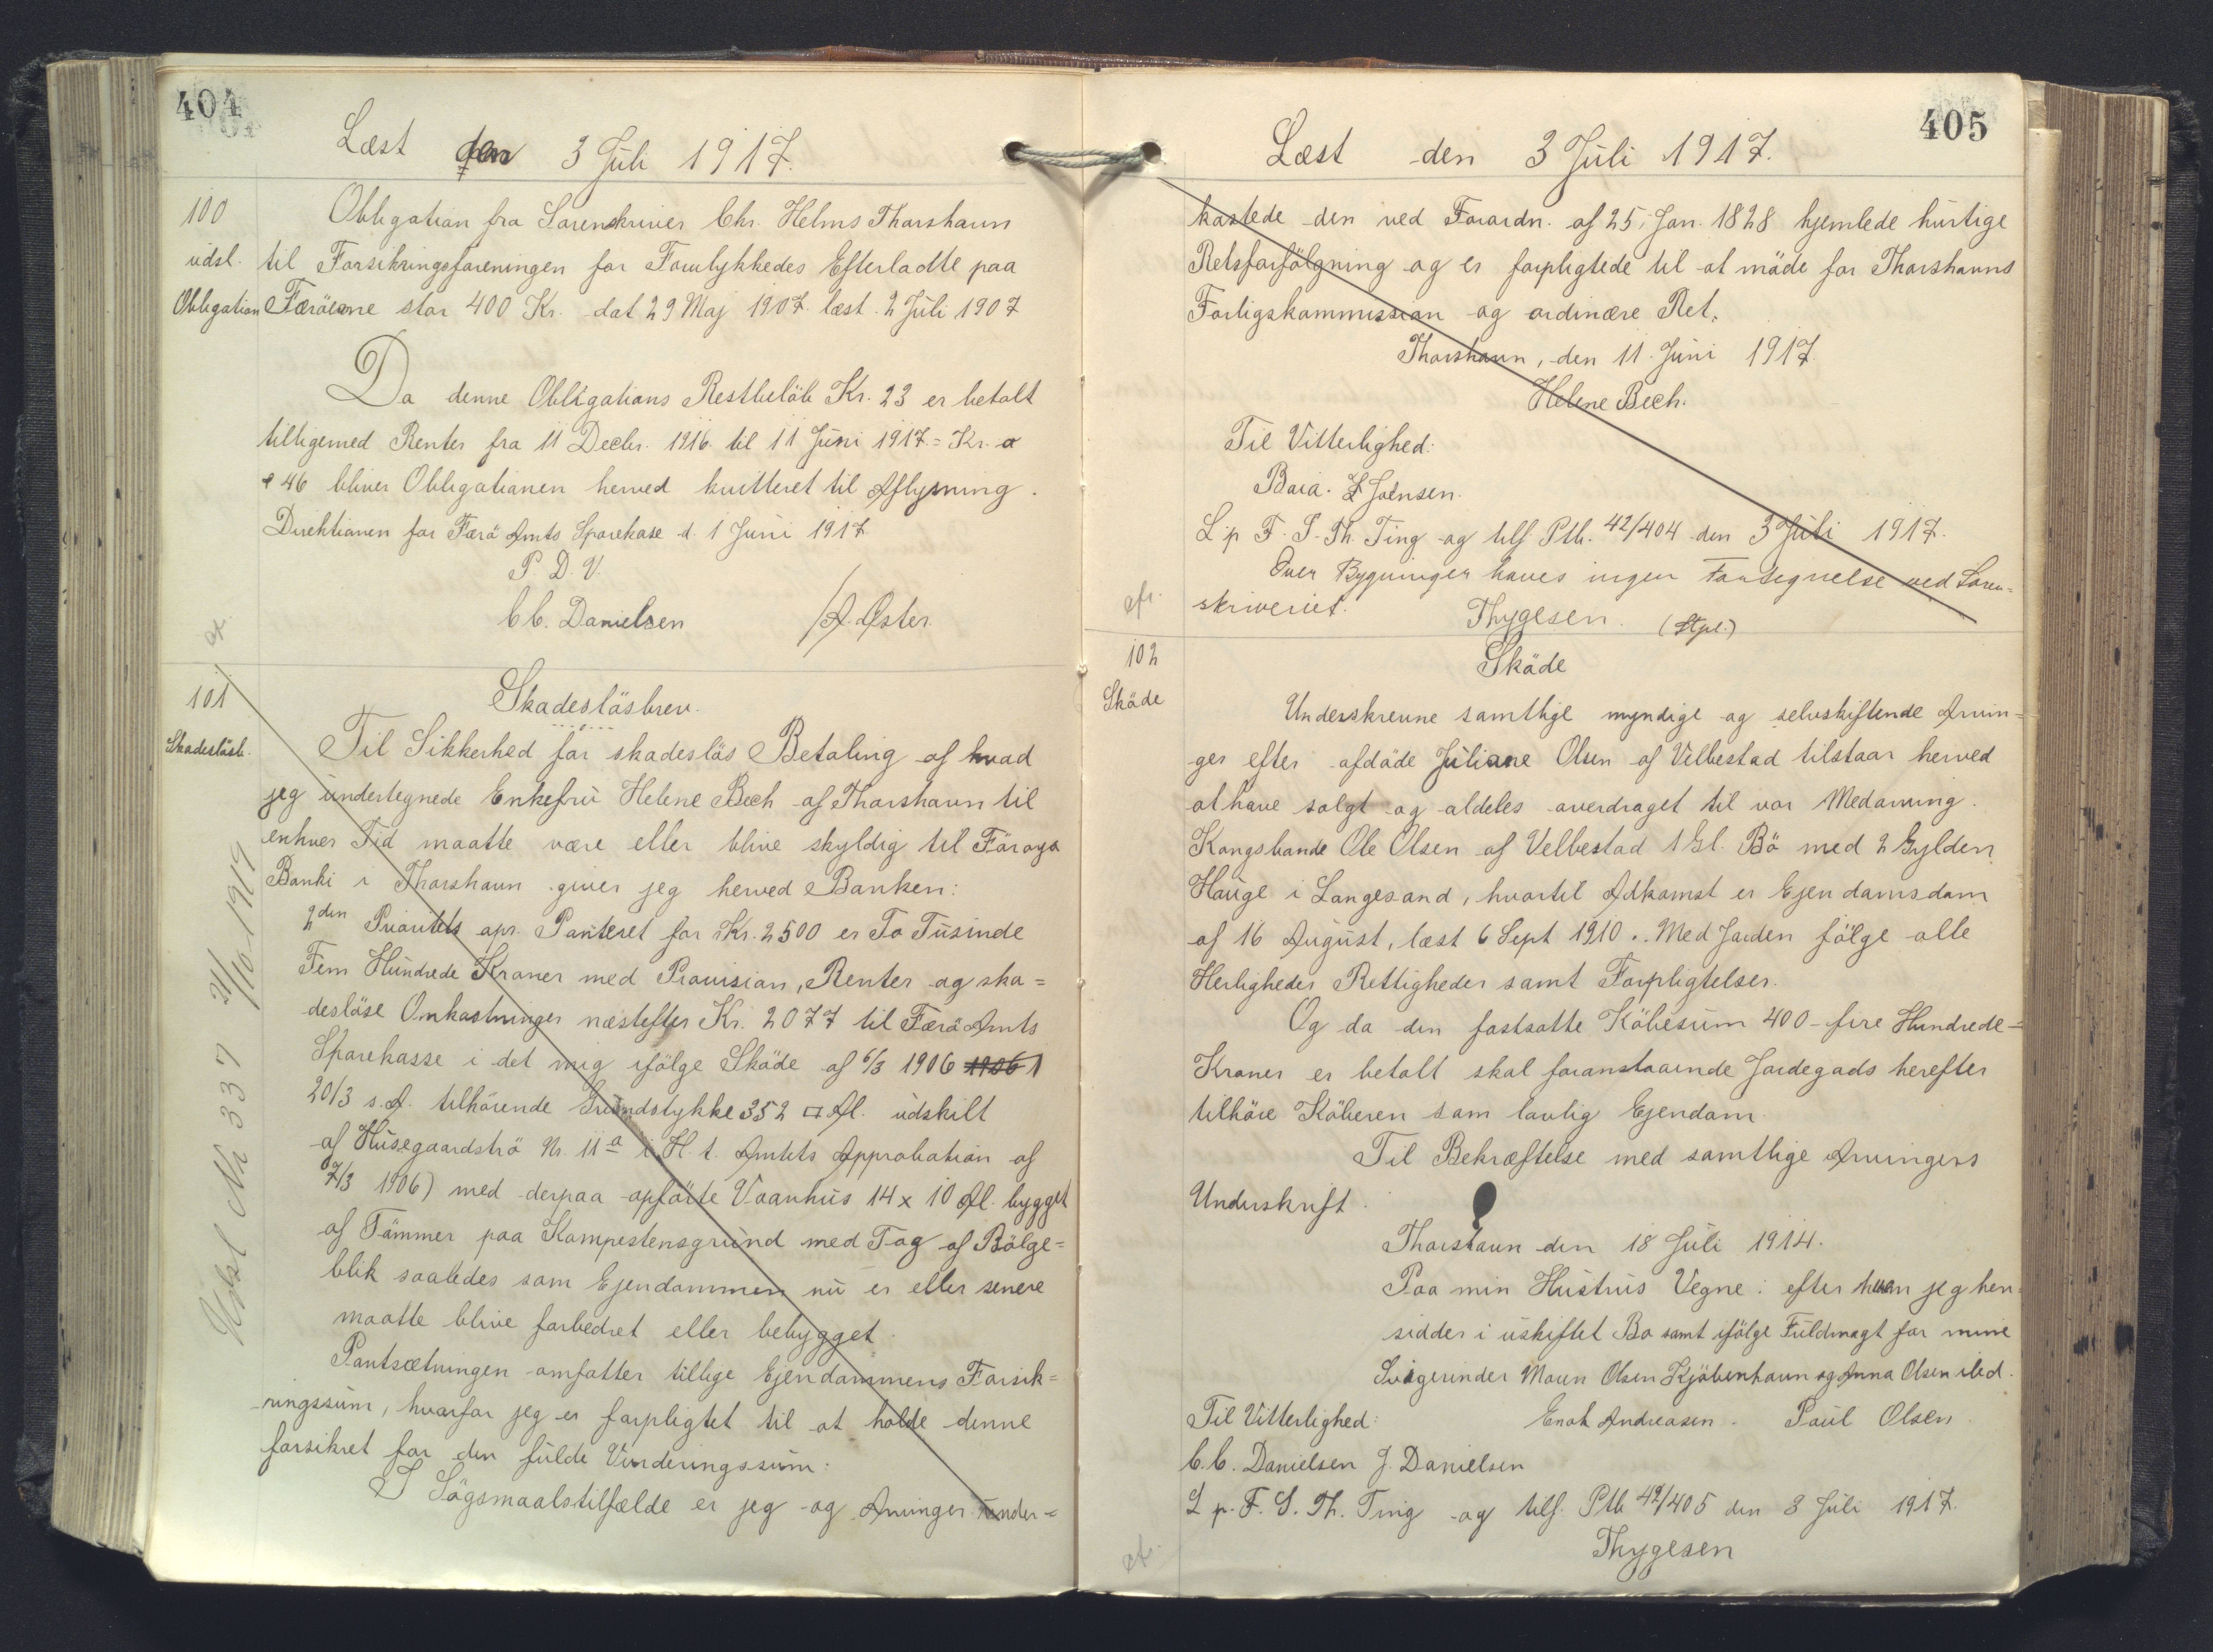 404
Læst den 3 Juli 1917.
100
udsl.
Obligation
Obligation fra Sorenskriver Chr. Helms Thorshavn
til Forsikringsforeningen for Forulykkedes Efterladte paa
Færöerne stor 400 Kr. dat 29 Maj 1907 læst 2 Juli 1907
Da denne Obligations Restbelöb Kr. 23 er betalt
tilligemed Renter fra 11 Decbr. 1916 til 11 Juni 1917 = Kr. o
46 bliver Obligationen herved kvitteret til Aflysning.
Direktionen for Færö Amts Sparekase d. 1 Juni 1917
P. D. V.
C.C. Danielsen / A. Øster.
cf.
101
Skadeslösb.
Skadeslösbrev.
Til Sikkerhed for skadeslös Betaling af hvad
jeg undertegnede Enkefru Helene Bech af Thorshavn til
enhver Tid maatte være eller blive skyldig til Föroya
Banki i Thorshavn giver jeg herved Banken:
2den Prioritets opr. Panteret for Kr. 2500 er To Tusinde
Fem Hundrede Kroner med Provision, Renter og ska=
deslöse Omkostninger næstefter Kr. 2077 til Færö Amts
Sparekasse i det mig ifölge Sköde af 6/3 1906 1906 1
20/3 s.A. tilhörende Grundstykke 352 □ Al. udskilt
af Husegaardströ Nr. 11a i H. t. Amtets Approbation af
7/3 1906) med derpaa opförte Vaanhus 14 x 10 Al. bygget
af Tömmer paa Kampestensgrund med Tag af Bölge=
blik saaledes som Ejendommen nu er eller senere
maatte blive forbedret eller bebygget.
Pantsætningen omfatter tillige Ejendommens Forsik=
ringssum, hvorfor jeg er forpligtet til at holde denne
forsikret for den fulde Vurderingssum:
I Sögsmaalstilfælde er jeg og Arvinger under=
Udsl Nr 337 21/10 1919
405
Læst den 3 Juli 1917.
kastede den ved Forordn. af 25 Jan. 1828 hjemlede hurtige
Retsforfölgning og er forpligtede til at möde for Thorshavns
Forligskommission og ordinære Ret.
Thorshavn, den 11. Juni 1917.
Helene Bech.
Til Vitterlighed:
Baia. Z Joensen.
L. p F. S. Th. Ting og tilf. Ptb. 42/404 den 3 Juli 1917.
Over Bygninger haves ingen Fortegnelse ved Soren=
skriveriet. Thygesen. (Stpl.)
cfr.
102
Sköde
Sköde
Underskrevne samtlige myndige og selvskiftende Arvin=
ger efter afdöde Juliane Olsen af Velbestad tilstaar herved
at have solgt og aldeles overdraget til vor Medarving.
Kongsbonde Ole Olsen af Velbestad 1 Gl. Bö med 2 Gylden
Hauge i Langesand, hvortil Adkomst er Ejendomsdom
af 16 August, læst 6 Sept 1910. Med Jorden fölge alle
Herligheder Rettigheder samt Forpligtelser.
Og da den fastsatte Köbesum 400 - fire Hundrede =
Kroner er betalt skal foranstaaende Jordegods herefter
tilhöre Köberen som lovlig Ejendom.
Til Bekræftelse med samtlige Arvingers
Underskrift.
Thorshavn den 18 Juli 1914.
Paa min Hustrus Vegne: efter hvem jeg hen=
sidder i uskiftet Bo samt ifölge Fuldmagt for mine
Svigerinder Maun Olsen Kjöbenhavn og Anna Olsen ibd.
Til Vitterlighed: Enok Andreasen. Paul Olsen.
C.C. Danielsen J. Danielsen
L p. F. S. Th. Ting og tilf. Ptb 42/405 den 3 Juli 1917.
Thygesen
cfr.